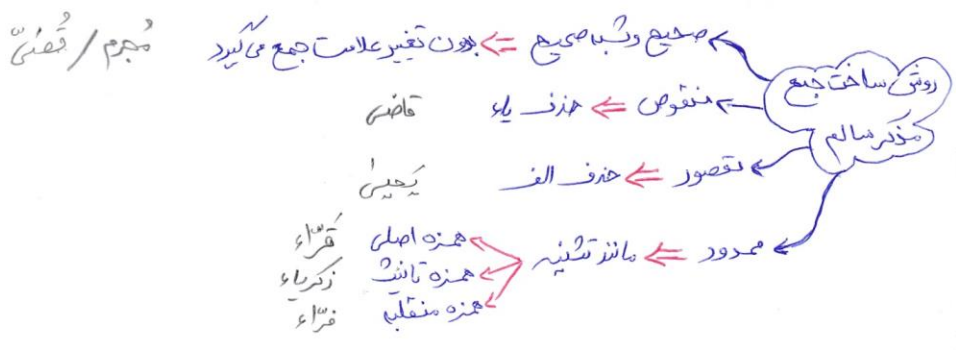 روش ساخت جمع
مذکر سالم
صحیح و شبه صحیح ⇐ بدون تغییر علامت جمع می گیرد مُجرم / قُصَیّ
منقوص ⇐ حذف یاء قاضی
مقصور ⇐ حذف الف یَحییٰ
ممدود ⇐ مانند تثنیه
همزه اصلی قُرّاء
همزه تانیث زکریاء
همزه منقلبه فرّاء